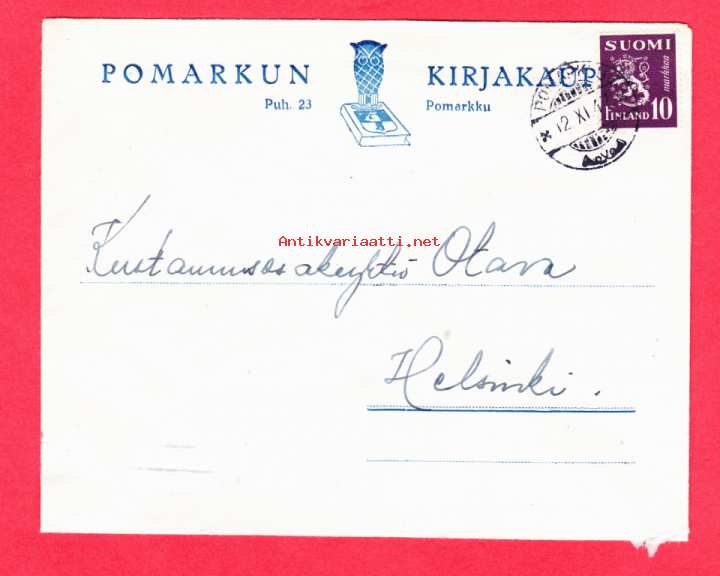 POMARKUN KIRJAKAUP
Puh. 23 Pomarkku
SUOMI
markkaa
FINLAND 10
12 XI 4
Antikvariaatti.net
Kustannusosakeyhtiö Otava
Helsinki.